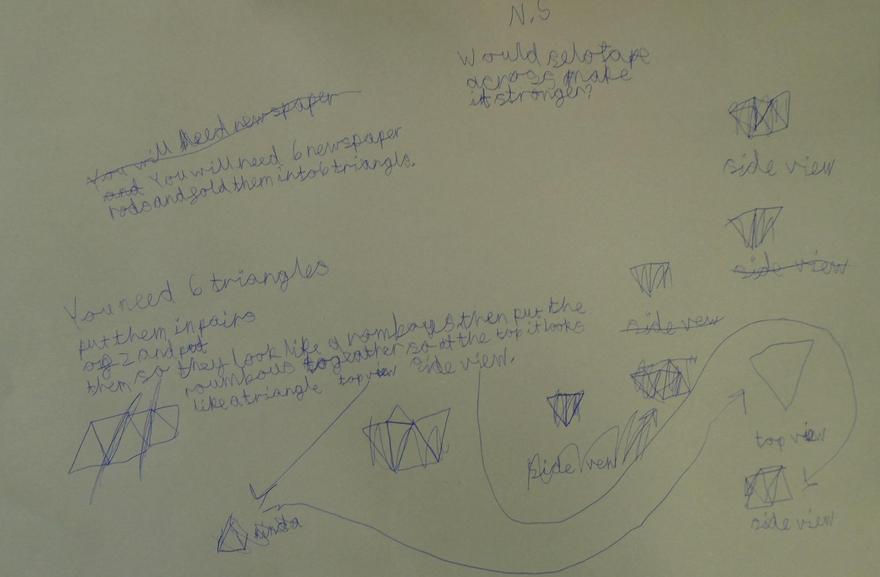 N.S
Would selotape
across make
it stronger?
You will need newspaper
and You will need 6 newspaper
rods and fold them into 6 triangls.
side view
side view
You need 6 triangles
put them in pairs
of 2 and put
them so they look like a rombous then put the
roumbous togeather so at the top it looks
like a triangle top view side view.
side vew
side vew
top view
kinda
side view